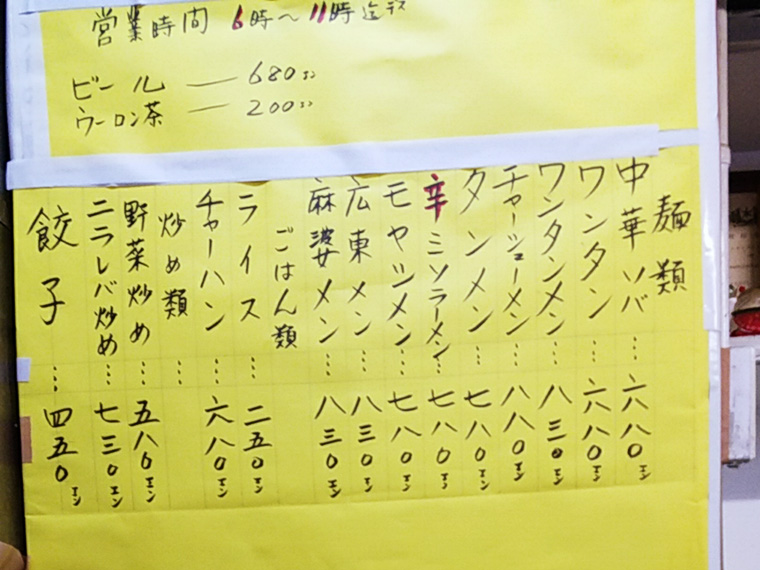 営業時間 6時〜11時迄デス
ビール — 680エン
ウーロン茶 — 200エン
麺類
中華ソバ…六八〇エン
ワンタン…六八〇エン
ワンタンメン…八三〇エン
チャーシューメン…八八〇エン
タンメン…七八〇エン
辛ミソラーメン…七八〇エン
モヤシメン…七八〇エン
広東メン…八三〇エン
麻婆メン…八三〇エン
ごはん類
ライス…二五〇エン
チャーハン…六八〇エン
炒め類…
野菜炒め…五八〇エン
ニラレバ炒め…七三〇エン
餃子…四五〇エン